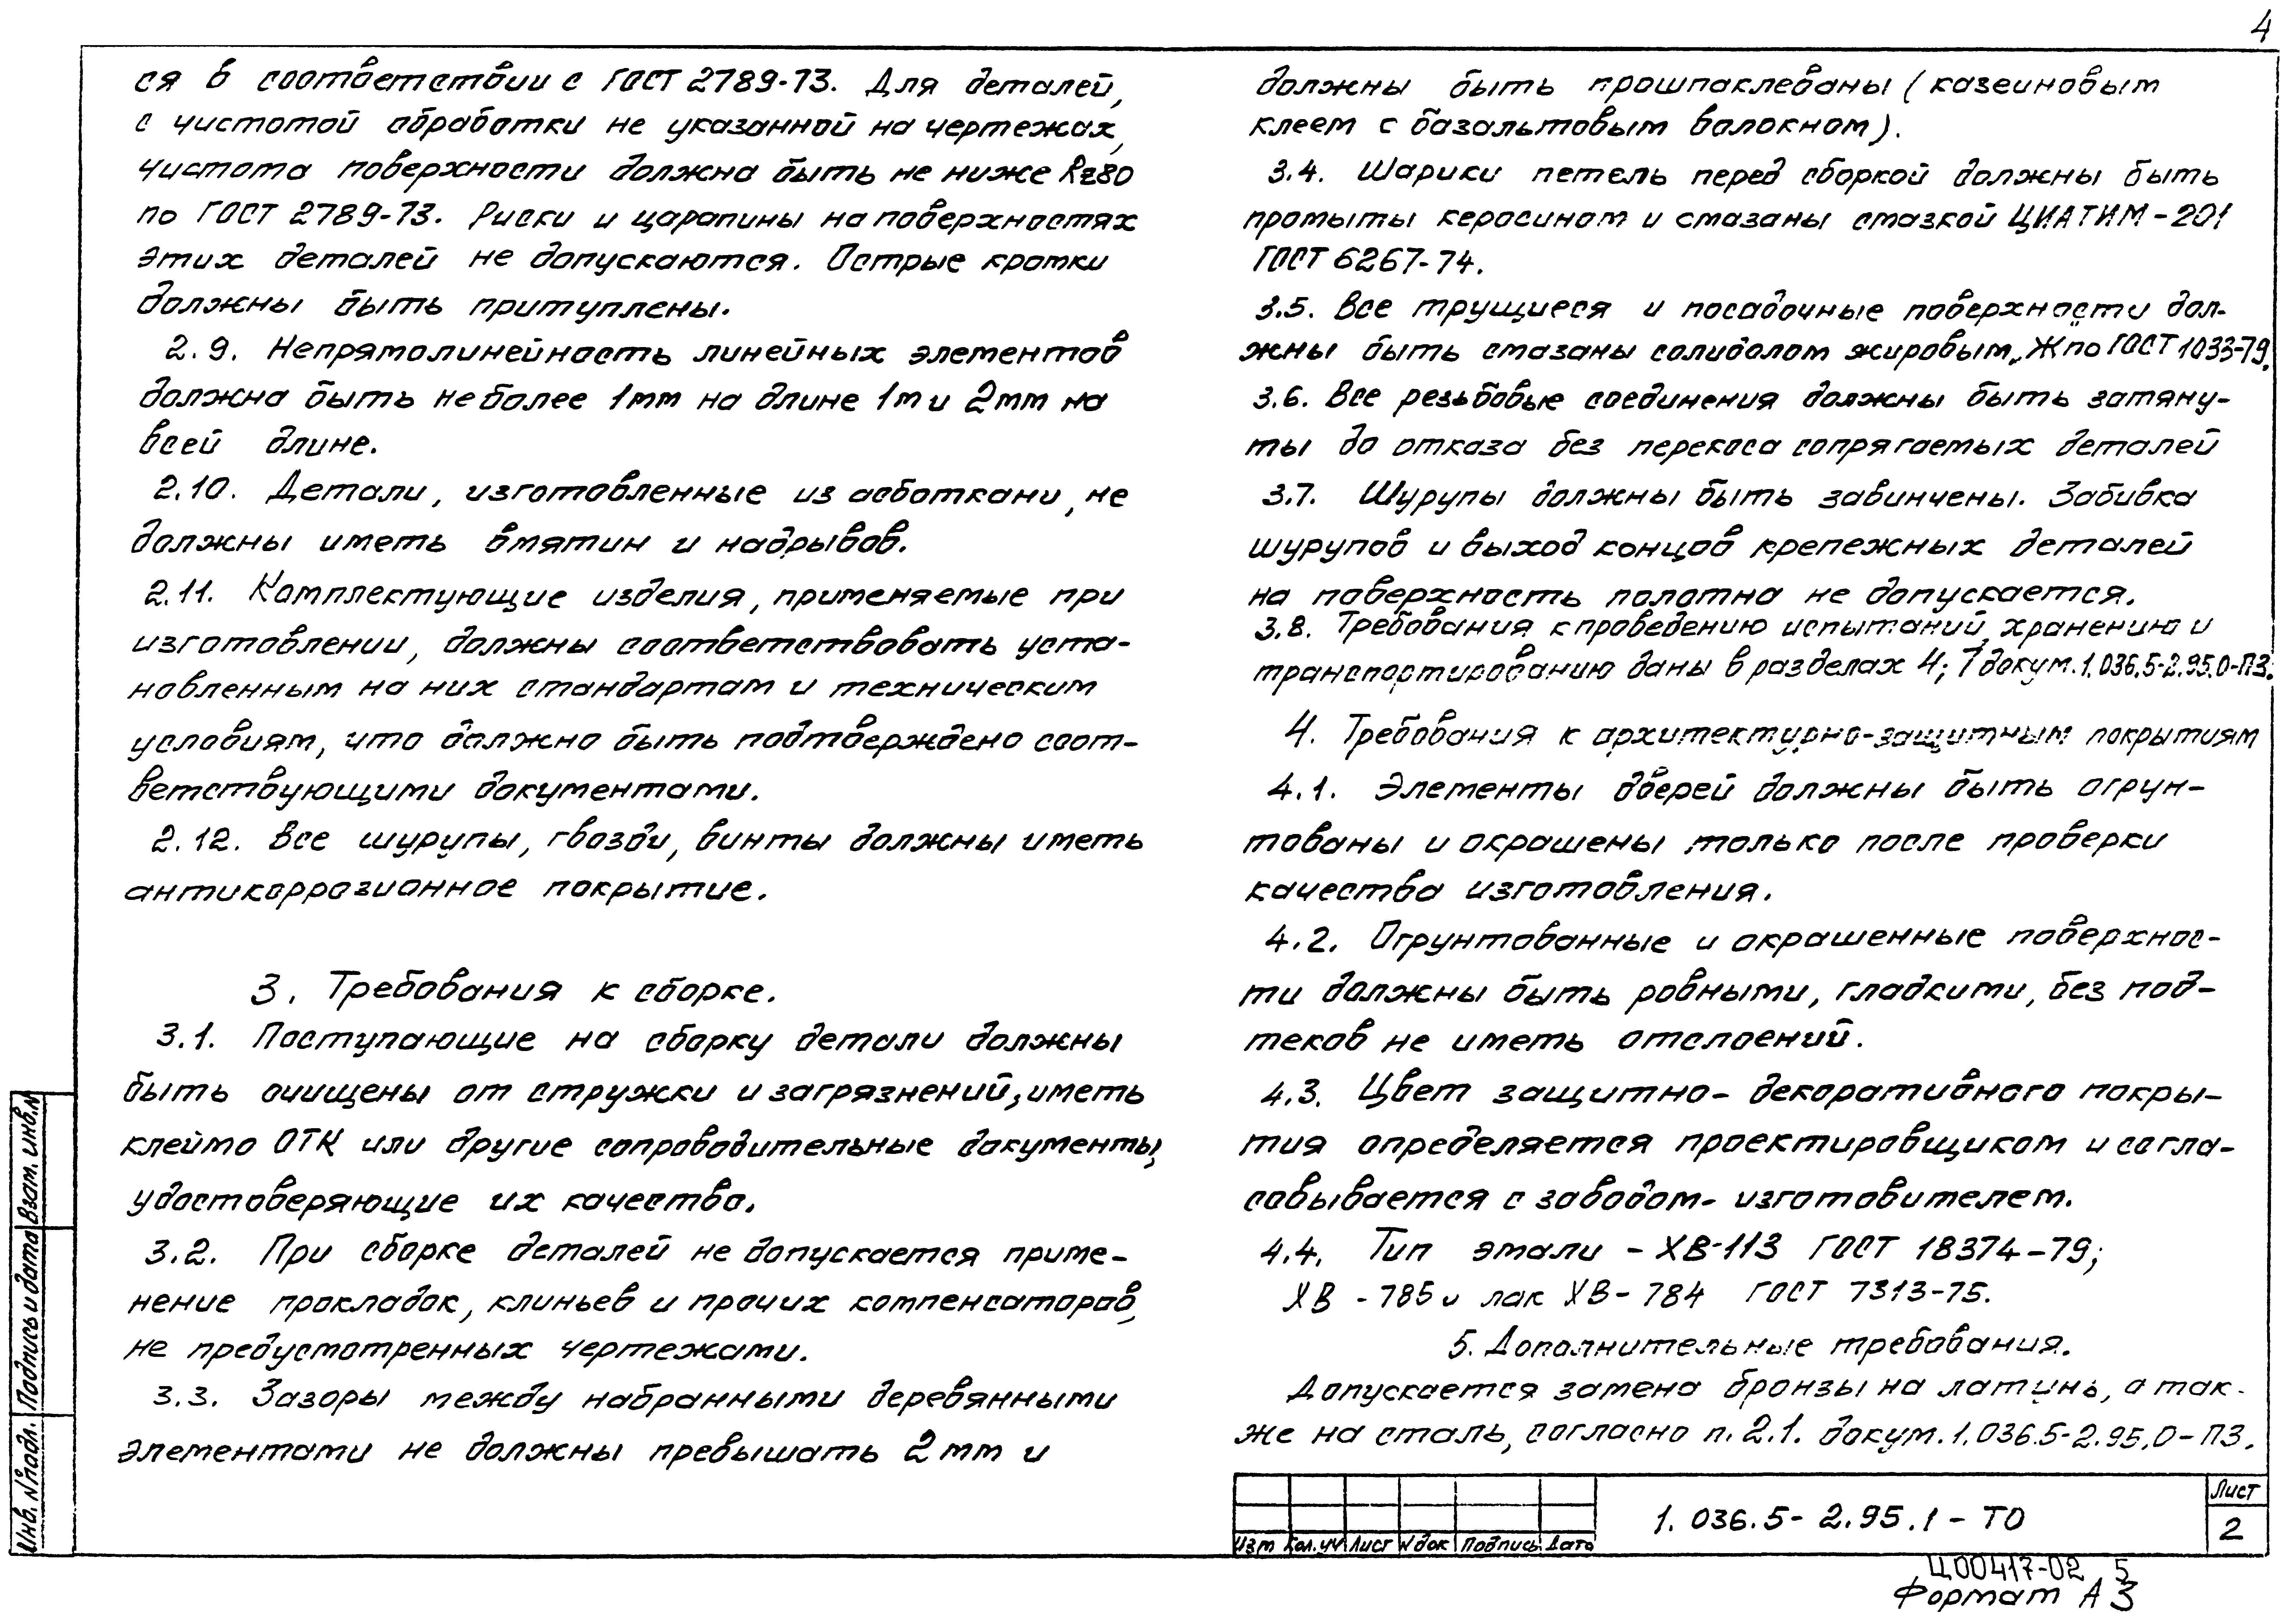 4
ся в соответствии с ГОСТ 2789-73. Для деталей,
с чистотой обработки не указанной на чертежах,
чистота поверхности должна быть не ниже Rz80
по ГОСТ 2789-73. Риски и царапины на поверхностях
этих деталей не допускаются. Острые кромки
должны быть притуплены.
2.9. Непрямолинейность линейных элементов
должна быть не более 1мм на длине 1м и 2мм на
всей длине.
2.10. Детали, изготовленные из асботкани, не
должны иметь вмятин и надрывов.
2.11. Комплектующие изделия, применяемые при
изготовлении, должны соответствовать уста-
новленным на них стандартам и техническим
условиям, что должно быть подтверждено соот-
ветствующими документами.
2.12. Все шурупы, гвозди, винты должны иметь
антикоррозионное покрытие.
3. Требования к сборке.
3.1. Поступающие на сборку детали должны
быть очищены от стружки и загрязнений, иметь
клеймо ОТК или другие сопроводительные документы,
удостоверяющие их качество.
3.2. При сборке деталей не допускается приме-
нение прокладок, клиньев и прочих компенсаторов,
не предусмотренных чертежами.
3.3. Зазоры между набранными деревянными
элементами не должны превышать 2мм и
должны быть прошпаклеваны (казеиновым
клеем с базальтовым волокном).
3.4. Шарики петель перед сборкой должны быть
промыты керосином и смазаны смазкой ЦИАТИМ-201
ГОСТ 6267-74.
3.5. Все трущиеся и посадочные поверхности дол-
жны быть смазаны солидолом жировым „Ж" по ГОСТ 1033-79.
3.6. Все резьбовые соединения должны быть затяну-
ты до отказа без перекоса сопрягаемых деталей
3.7. Шурупы должны быть завинчены. Забивка
шурупов и выход концов крепежных деталей
на поверхность полотна не допускается.
3.8. Требования к проведению испытаний, хранению и
транспортированию даны в разделах 4; 7 докум. 1.036.5-2.95.0-ПЗ.
4. Требования к архитектурно-защитным покрытиям
4.1. Элементы дверей должны быть огрун-
тованы и окрашены только после проверки
качества изготовления.
4.2. Огрунтованные и окрашенные поверхнос-
ти должны быть ровными, гладкими, без под-
теков не иметь отслоений.
4.3. Цвет защитно-декоративного покры-
тия определяется проектировщиком и согла-
совывается с заводом-изготовителем.
4.4. Тип эмали - ХВ-113 ГОСТ 18374-79;
ХВ-785 и лак ХВ-784 ГОСТ 7313-75.
5. Дополнительные требования.
Допускается замена бронзы на латунь, а так-
же на сталь, согласно п. 2.1. докум. 1.036.5-2.95.0-ПЗ.
Инв. № подл. Подпись и дата Взам. инв. №
Изм Кол.уч Лист № док Подпись Дата
1.036.5-2.95.1-ТО
Лист
2
Ц00417-02 5
Формат А3